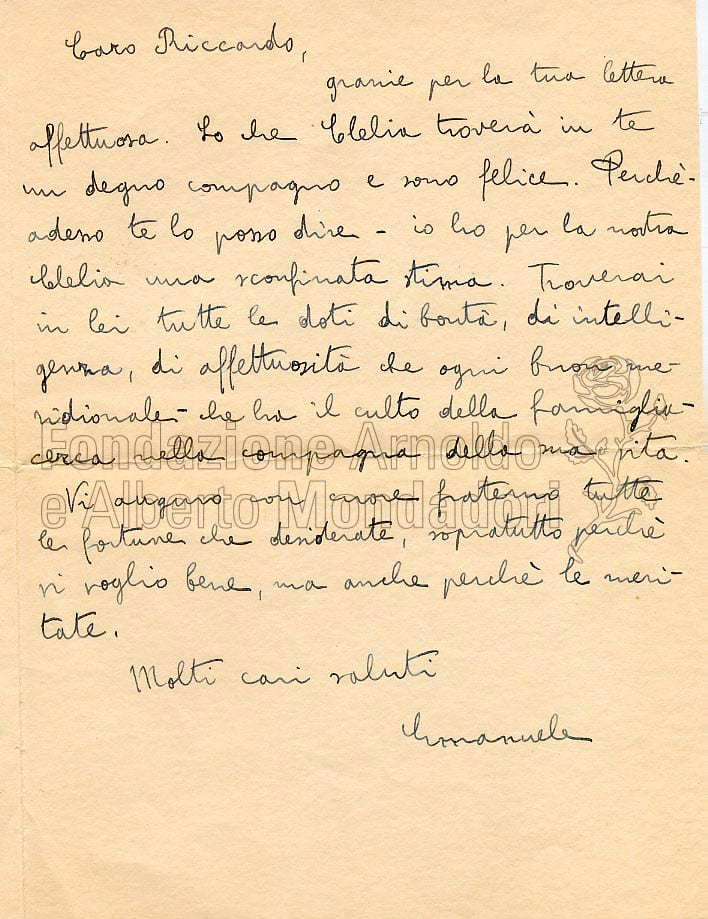 Caro Riccardo,
grazie per la tua lettera
affettuosa. So che Clelia troverà in te
un degno compagno e sono felice. Perchè-
adesso te lo posso dire - io ho per la nostra
Clelia una sconfinata stima. Troverai
in lei tutte le doti di bontà, di intelli-
genza, di affettuosità che ogni buon me-
ridionale - che ha il culto della famiglia -
cerca nella compagna della sua vita.
Vi auguro con cuore fraterno tutte
le fortune che desiderate, sopratutto perchè
vi voglio bene, ma anche perchè le meri-
tate.
Molti cari saluti
Emanuele
Fondazione Arnoldo
e Alberto Mondadori